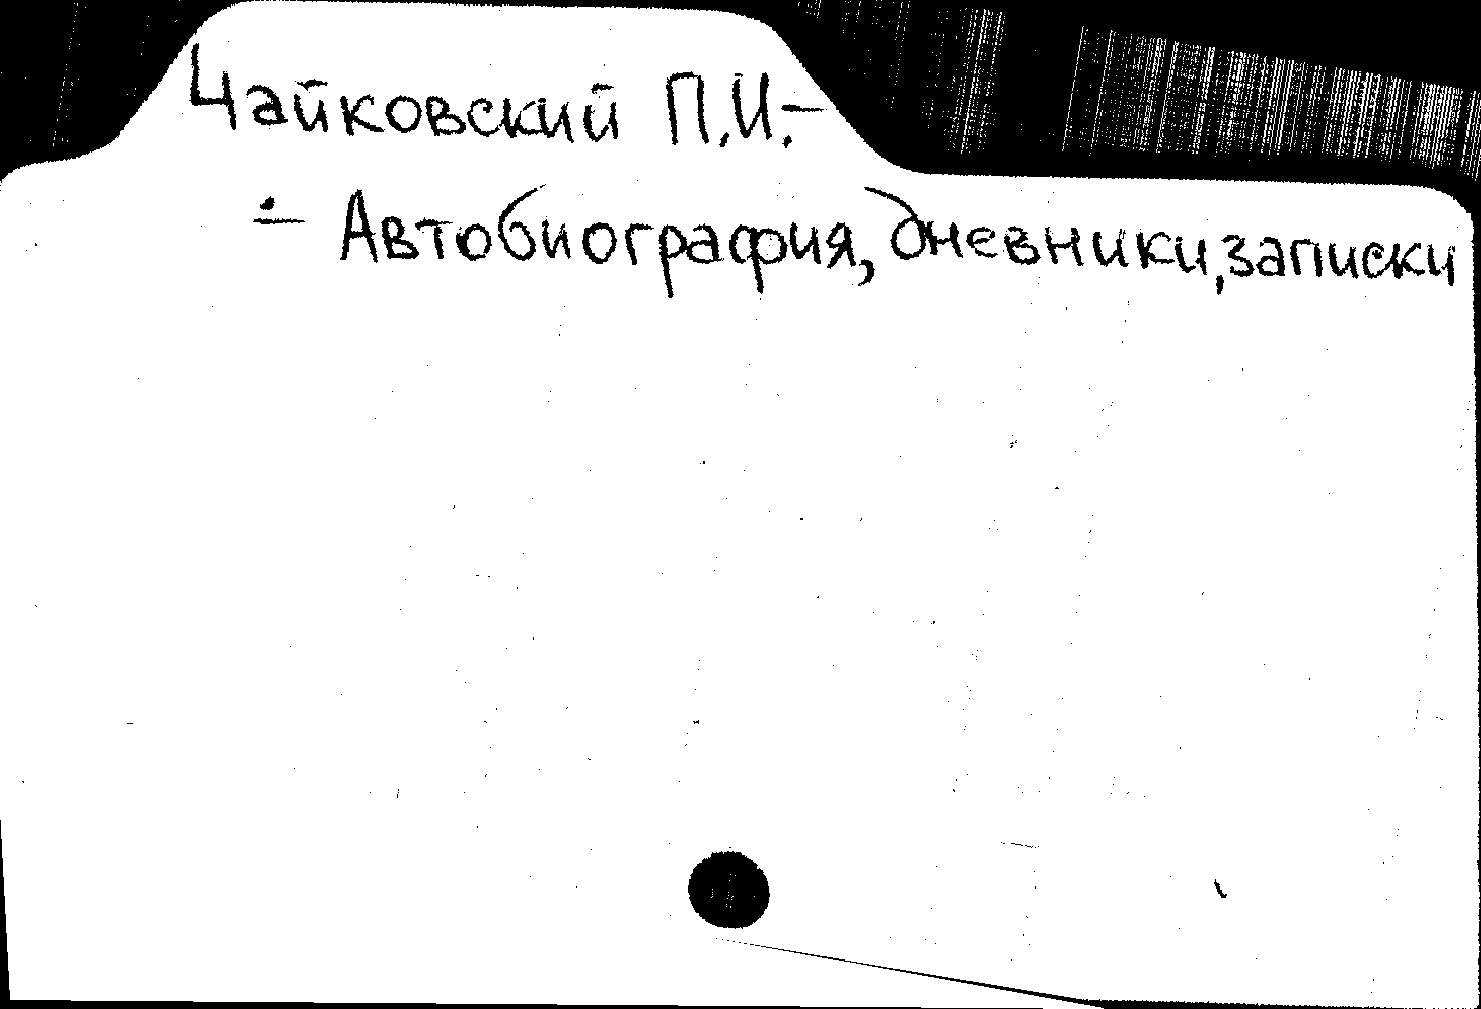 Чайковский П.И.–
– Автобиография, дневники, записки